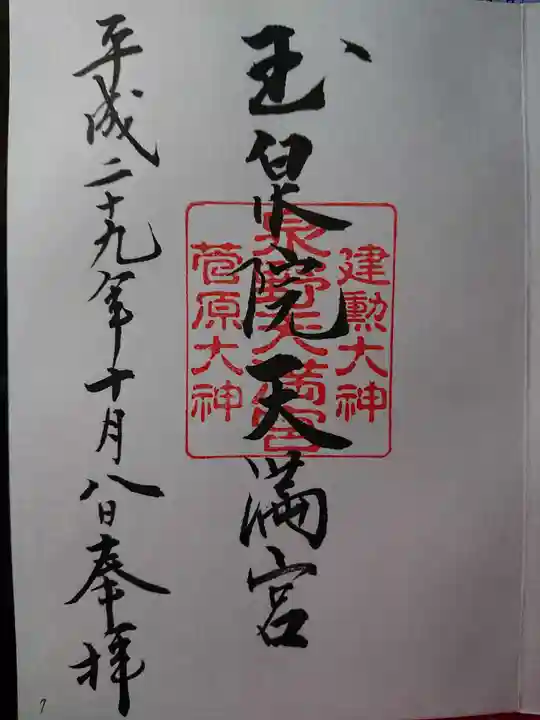 玉泉院天満宮
建勲大神
泉院天満宮
菅原大神
平成二十九年十月八日奉拝
7